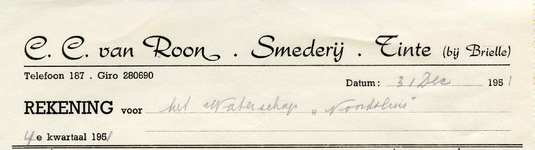 C. C. van Roon . Smederij . Tinte (bij Brielle)
Telefoon 187 . Giro 280690
Datum: 31 Dec 1951
REKENING voor het Waterschap „Noordsluis"
4e kwartaal 1951